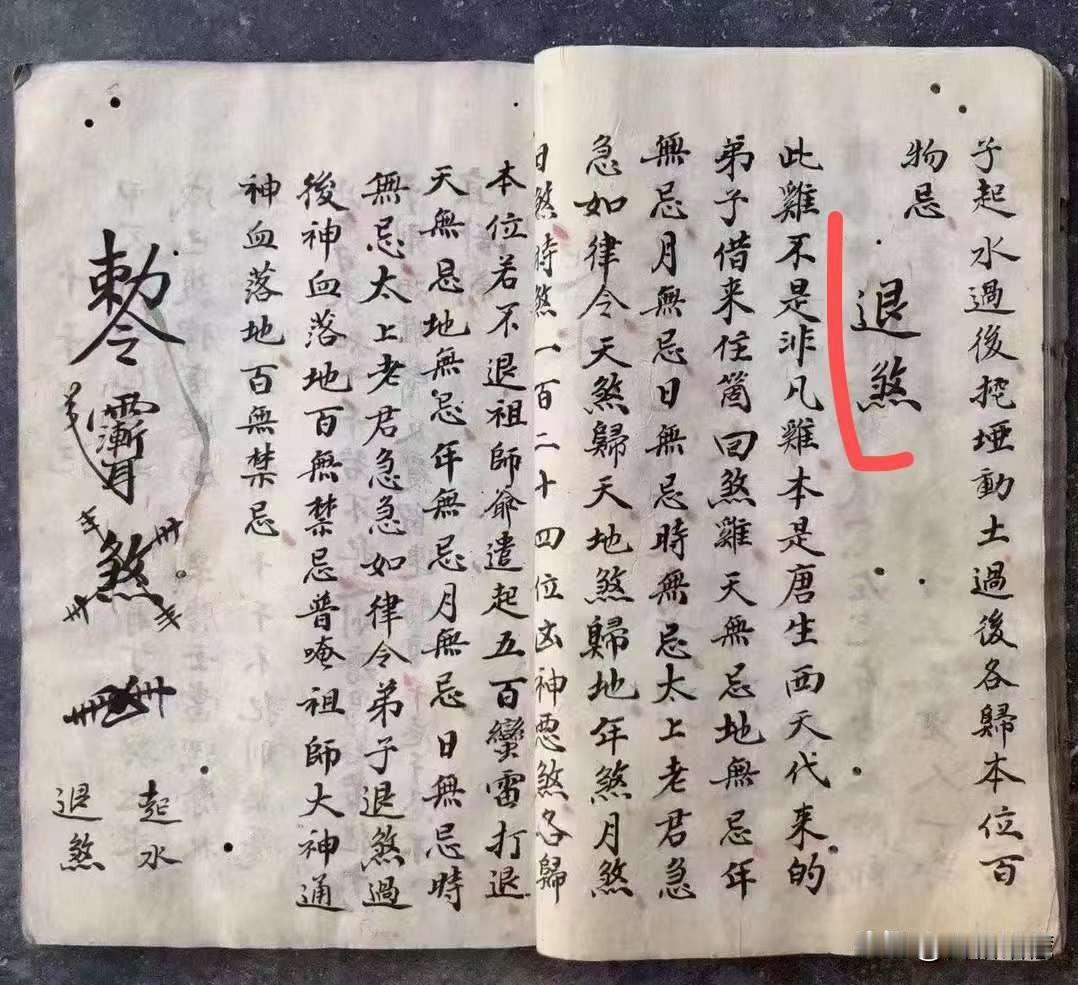 子起水過後挖埡動土過後各歸本位百
物忌
退煞
此雞不是非凡雞本是唐生西天代来的
弟子借来住箇回煞雞天無忌地無忌年
無忌月無忌日無忌時無忌太上老君急
急如律令天煞歸天地煞歸地年煞月煞
日煞時煞一百二十四位凶神惡煞各歸
本位若不退祖師爺遣起五百蠻雷打退
天無忌地無忌年無忌月無忌日無忌時
無忌太上老君急急如律令弟子退煞過
後神血落地百無禁忌普唵祖師大神通
神血落地百無禁忌
勅令
煞
起水
退煞